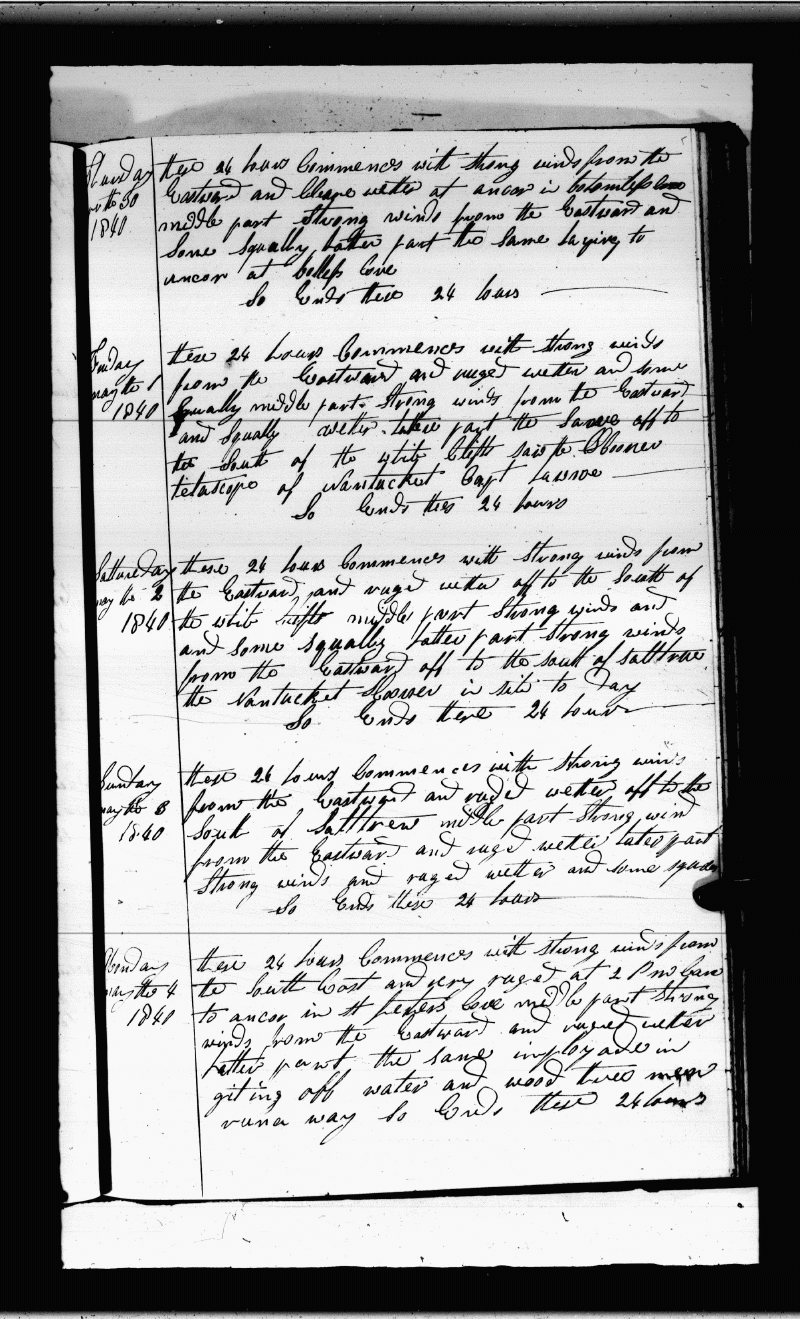 Thursday
the 30
1840
these 24 hours Commences with strong winds from the
Eastward and wether at ancor in
middle part Strong winds from the Eastward and
Some Squally latter part the Same laying to
ancor at Cove
So Ends these 24 hours
Friday
may the 1
1840
these 24 hours Commences with strong winds
from the Eastward and ruged wetter and some
Squally middle part Strong winds from the Eastward
and Squally wether latter part the Same off to
the South of the white Clifts saw the Schooner
telascope of Nantucket Capt
So Ends thes 24 hours
Satturday
may the 2
1840
these 24 hours Commences with Strong winds from
the Eastward and ruged wether off to the South of
the white middle part Strong winds and
and Some Squally latter part Strong winds
from the Eastward off to the south of
the Nantucket in site to Day
So Ends these 24 hours
Sunday
may the 3
1840
these 24 hours Commences with Strong winds
from the Eastward and ruged wetter off to the
South of middle part Strong wind
from the Eastward and ruged wetter later part
Strong winds and ruged wetter and some
So Ends these 24 hours
Monday
may the 4
1840
these 24 hours Commences with strong winds from
the South East and very ruged at 2 P m Came
to ancor in Cove middle part Strong
winds from the Eastward and ruged wetter
latter part the same imployade in
giting off water and wood three men
runa way So Ends these 24 hours